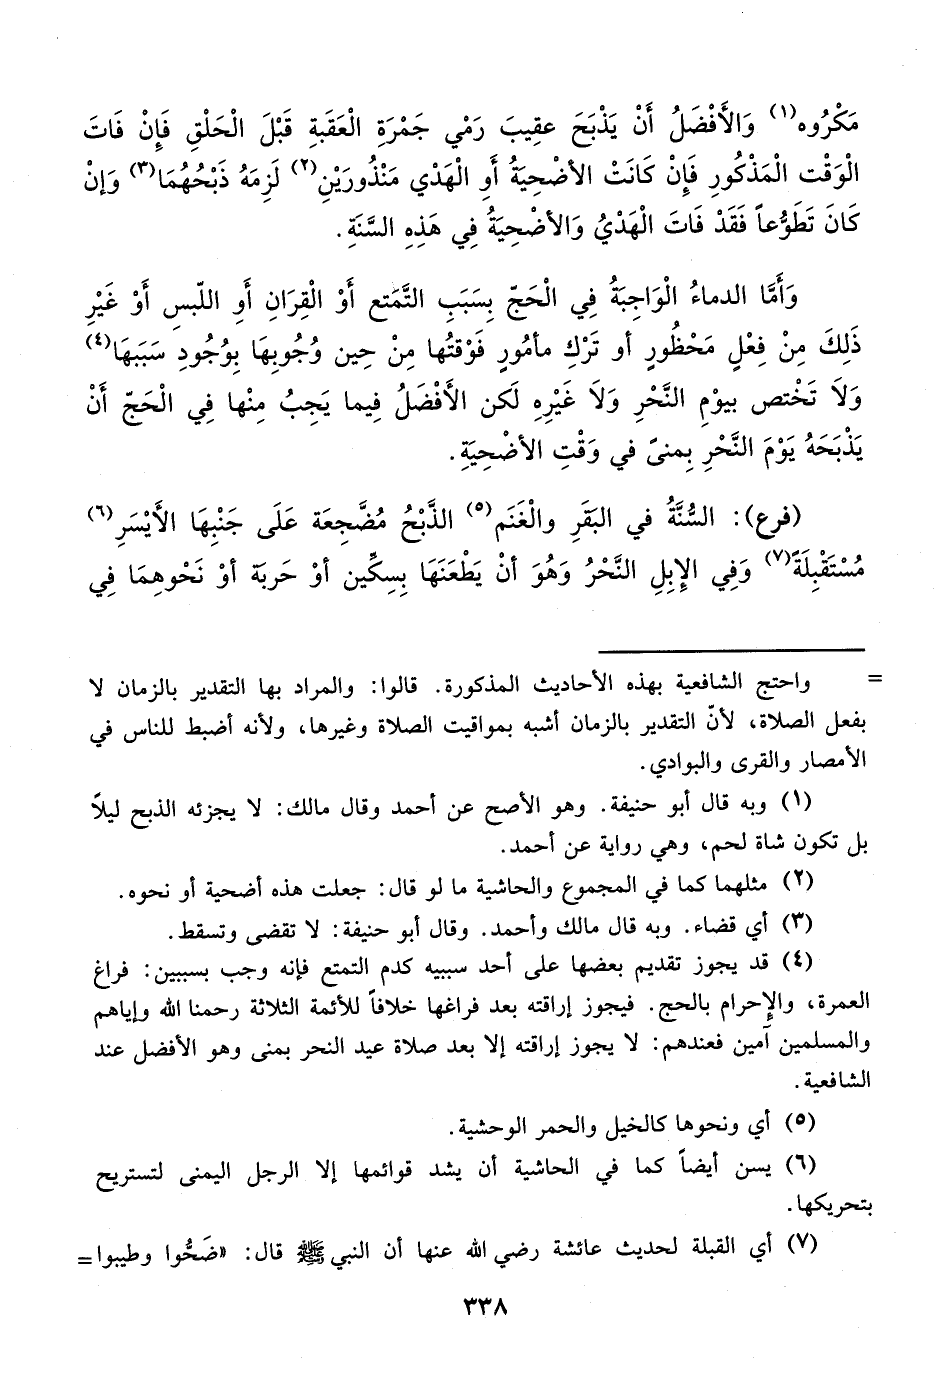 مَكْرُوه(١) وَالأَفْضَلُ أَنْ يَذْبَحَ عقِيبَ رَمْي جَمْرَةِ الْعَقَبةِ قَبْلَ الْحَلْقِ فَإِنْ فَاتَ
الْوَقْت الْمَذْكُورِ فَإِنْ كَانَتْ الأضْحِيَةُ أَوِ الْهَدْي مَنْذُورَيْنِ(٢) لَزِمَهُ ذَبْحُهُمَا(٣) وَإنْ
كَانَ تَطَوُّعاً فَقَدْ فَاتَ الْهَدْيُ وَالأضْحِيَةُ فِي هَذِهِ السَّنَةِ.
وَأَمَّا الدماءُ الْوَاجِبَةُ فِي الْحَجّ بِسَبَبِ التَّمَتع أَوْ الْقِرَانِ أَوِ اللّبسِ أَوْ غَيْرِ
ذَلِكَ مِنْ فِعْلِ مَحْظُورٍ أو تَرْكِ مأمُورٍ فَوْقتُها مِنْ حِين وُجُوبِهَا بِوُجُودِ سَبَبَهَا(٤)
وَلَا تَخْتص بيوْمِ النَّحْرِ وَلَا غَيْرِهِ لَكن الأَفْضَلُ فِيما يَجِبُ مِنْها فِي الْحَجّ أَنْ
يَذْبَحَهُ يَوْمَ النَّحْرِ بِمنىً في وَقْتِ الأضْحِيَةِ.
(فرع): السُّنَّةُ في البَقَرِ والْغَنَم(٥) الذَّبْحُ مُضَّجِعَة عَلَى جَنْبِهَا الأيْسَرِ(٦)
مُسْتَقْبِلَةً(٧) وَفِي الإِبِلِ النَّحْرُ وَهُوَ أنْ يَطْعَنَهَا بِسِكِّين أوْ حَربَة أوْ نَحْوِهِمَا فِي
= واحتج الشافعية بهذه الأحاديث المذكورة. قالوا: والمراد بها التقدير بالزمان لا
بفعل الصلاة، لأنّ التقدير بالزمان أشبه بمواقيت الصلاة وغيرها، ولأنه أضبط للناس في
الأمصار والقرى والبوادي.
(١) وبه قال أبو حنيفة. وهو الأصح عن أحمد وقال مالك: لا يجزئه الذبح ليلاً
بل تكون شاة لحم، وهي رواية عن أحمد.
(٢) مثلهما كما في المجموع والحاشية ما لو قال: جعلت هذه أضحية أو نحوه.
(٣) أي قضاء. وبه قال مالك وأحمد. وقال أبو حنيفة: لا تقضى وتسقط.
(٤) قد يجوز تقديم بعضها على أحد سببيه كدم التمتع فإنه وجب بسببين: فراغ
العمرة، والإحرام بالحج. فيجوز إراقته بعد فراغها خلافاً للأئمة الثلاثة رحمنا الله وإياهم
والمسلمين آمين فعندهم: لا يجوز إراقته إلا بعد صلاة عيد النحر بمنى وهو الأفضل عند
الشافعية.
(٥) أي ونحوها كالخيل والحمر الوحشية.
(٦) يسن أيضاً كما في الحاشية أن يشد قوائمها إلا الرجل اليمنى لتستريح
بتحريكها.
(٧) أي القبلة لحديث عائشة رضي الله عنها أن النبي ﷺ قال: «ضَحُّوا وطيبوا=
٣٣٨